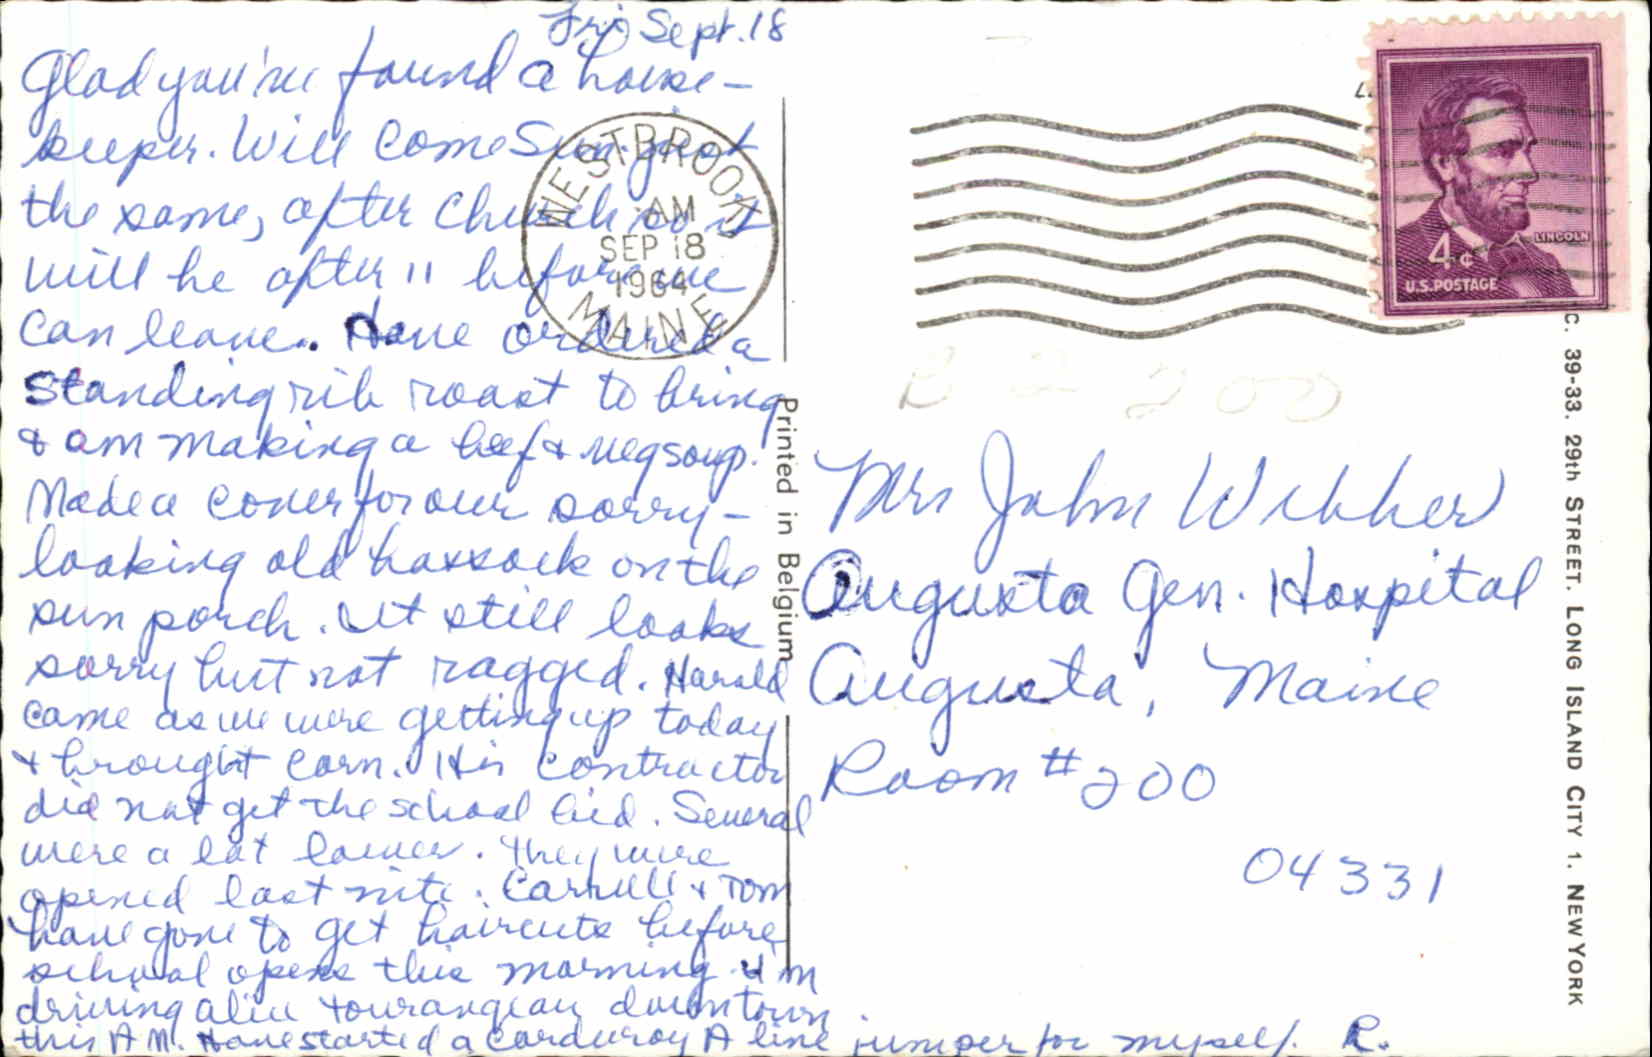 Fri Sept. 18
Glad you've found a house-
keeper. Will come Sun. just
the same, after church so it
will be after 11 before we
can leave. Have ordered a
standing rib roast to bring
& am making a beef & veg soup.
Made a cover for our sorry-
looking old hassock on the
sun porch. It still looks
sorry but not ragged. Harold
came as we were getting up today
& brought corn. His contractor
did not get the school bid. Several
were a lot lower. They were
opened last nite. & Tom
have gone to get haircuts before
school opens this morning. I'm
driving downtown
this A M. Have started a corduroy A line jumper for myself. R.
WESTBROOK
AM
SEP 18
1964
MAINE
LINCOLN
4¢
U.S. POSTAGE
R 2 200
Mrs John Webber
Augusta Gen. Hospital
Augusta, Maine
Room #200
04331
Printed in Belgium
C. 39-33. 29th STREET. LONG ISLAND CITY 1. NEW YORK